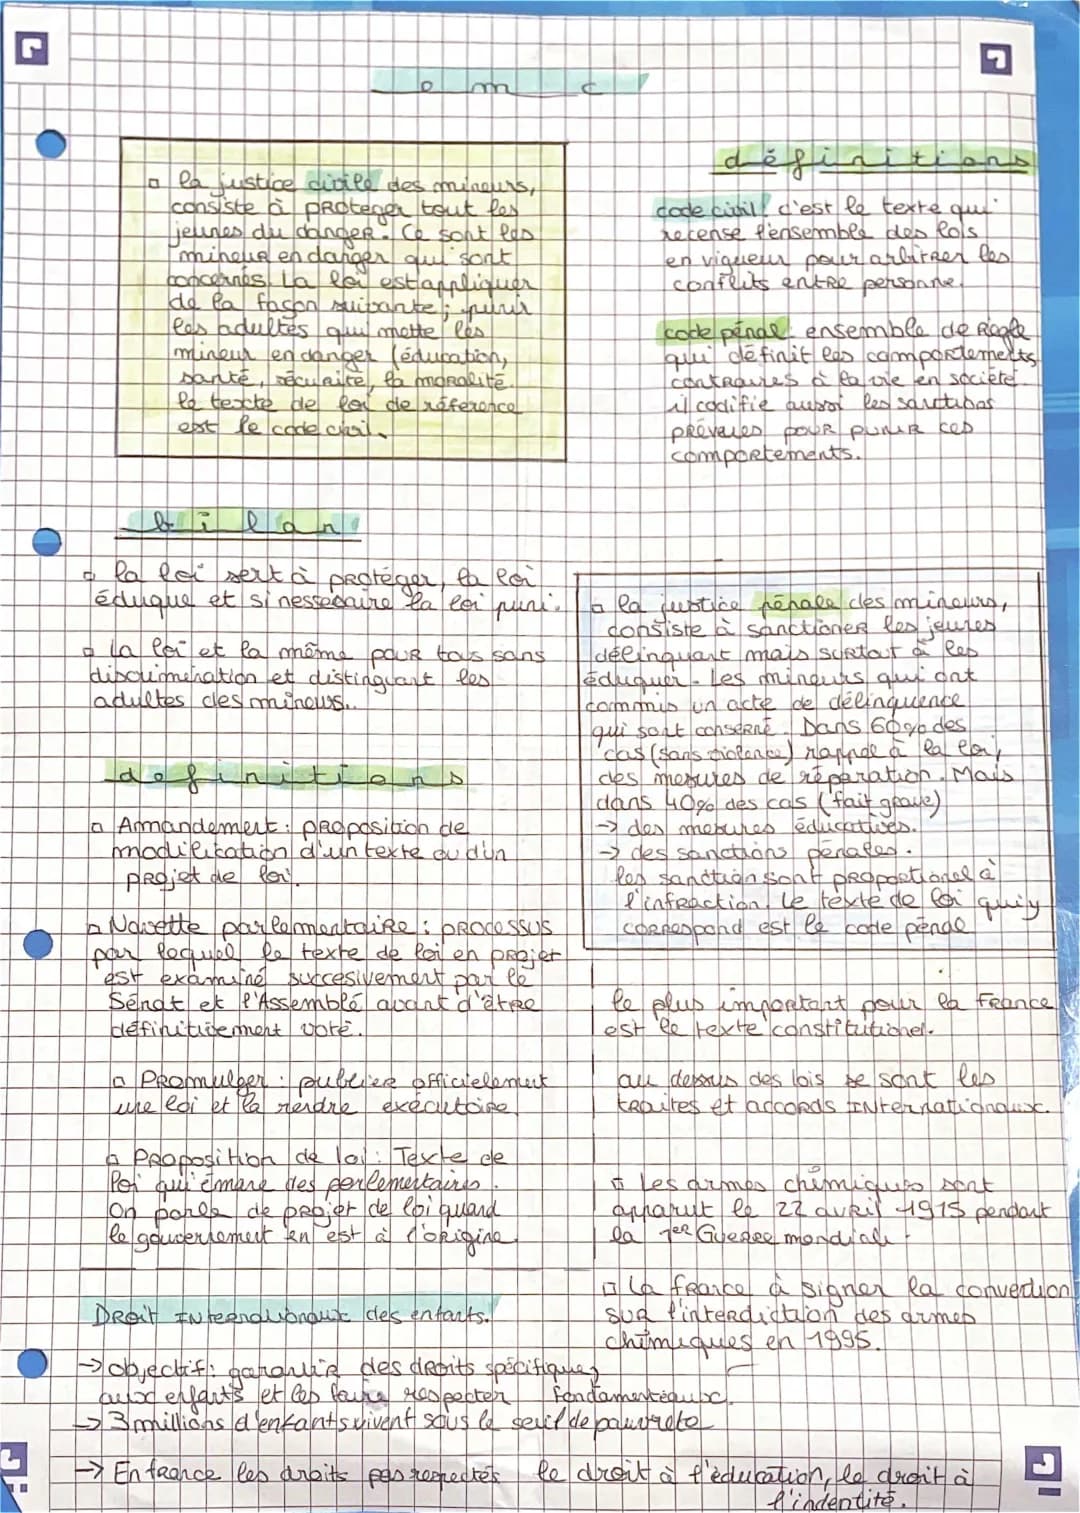 e m c
▫ la justice civile des mineurs,
consiste à proteger tout les
jeunes du danger. Ce sont les
mineur en danger qui sont
concernés. La loi est appliquer
de la façon suivante ; punir
les adultes qui mette les
mineur en danger (éducation,
santé, sécurité, la moralité.
le texte de loi de réference
est le code civil.
définitions
code civil : c'est le texte qui
recense l'ensemble des lois
en vigueur pour arbitrer les
conflits entre personne.
code pénal : ensemble de Règle
qui définit les comportements
contraires à la vie en societé.
il codifie aussi les sanctions
prévues pour punir ces
comportements.
bilan
▫ la loi sert à protéger, la loi
éduque et si nessecaire la loi puni.
▫ La loi et la même pour tous sans
discrimination et distinguant les
adultes des mineurs..
définitions
▫ Armandement : proposition de
modification d'un texte ou d'un
projet de loi.
▫ Navette parlementaire : processus
par lequel le texte de loi en projet
est examiné succesivement par le
Sénat et l'Assemblé avant d'être
définitivement voté.
▫ Promulger : publier officielement
une loi et la rendre exécutoire.
▫ Proposition de loi : Texte de
loi qui émane des perlementaires.
On parle de projet de loi quand
le gouvernement en est à l'origine.
▫ la justice pénale des mineurs,
consiste à sanctioner les jeunes
délinquant mais surtout à les
éduquer. Les mineurs qui ont
commis un acte de délinquence
qui sont conserné. Dans 60% des
cas (sans violence) rappel à la loi,
des mesures de réparation. Mais
dans 40% des cas (fait grave)
→ des mesures éducatives.
→ des sanctions pénales.
les sanction sont proportionel à
l'infraction. Le texte de loi qui y
correspond est le code pénal
le plus important pour la France
est le texte constitutionel.
au dessus des lois se sont les
traites et accords Internationaux.
▫ Les armes chimiques sont
apparut le 22 avril 1915 pendant
la 1ère Guerre mondiale.
▫ La france à signer la convention
sur l'interdiction des armes
chimiques en 1995.
Droit Internationaux des enfants.
→ objectif : garantir des droits spécifiques
aux enfants et les faire respecter fondamentaux.
→ 3 millions d'enfants vivent sous le seuil de pauvreté
→ En france les droits pas respectés le droit à l'éducation, le droit à
l'indentité.